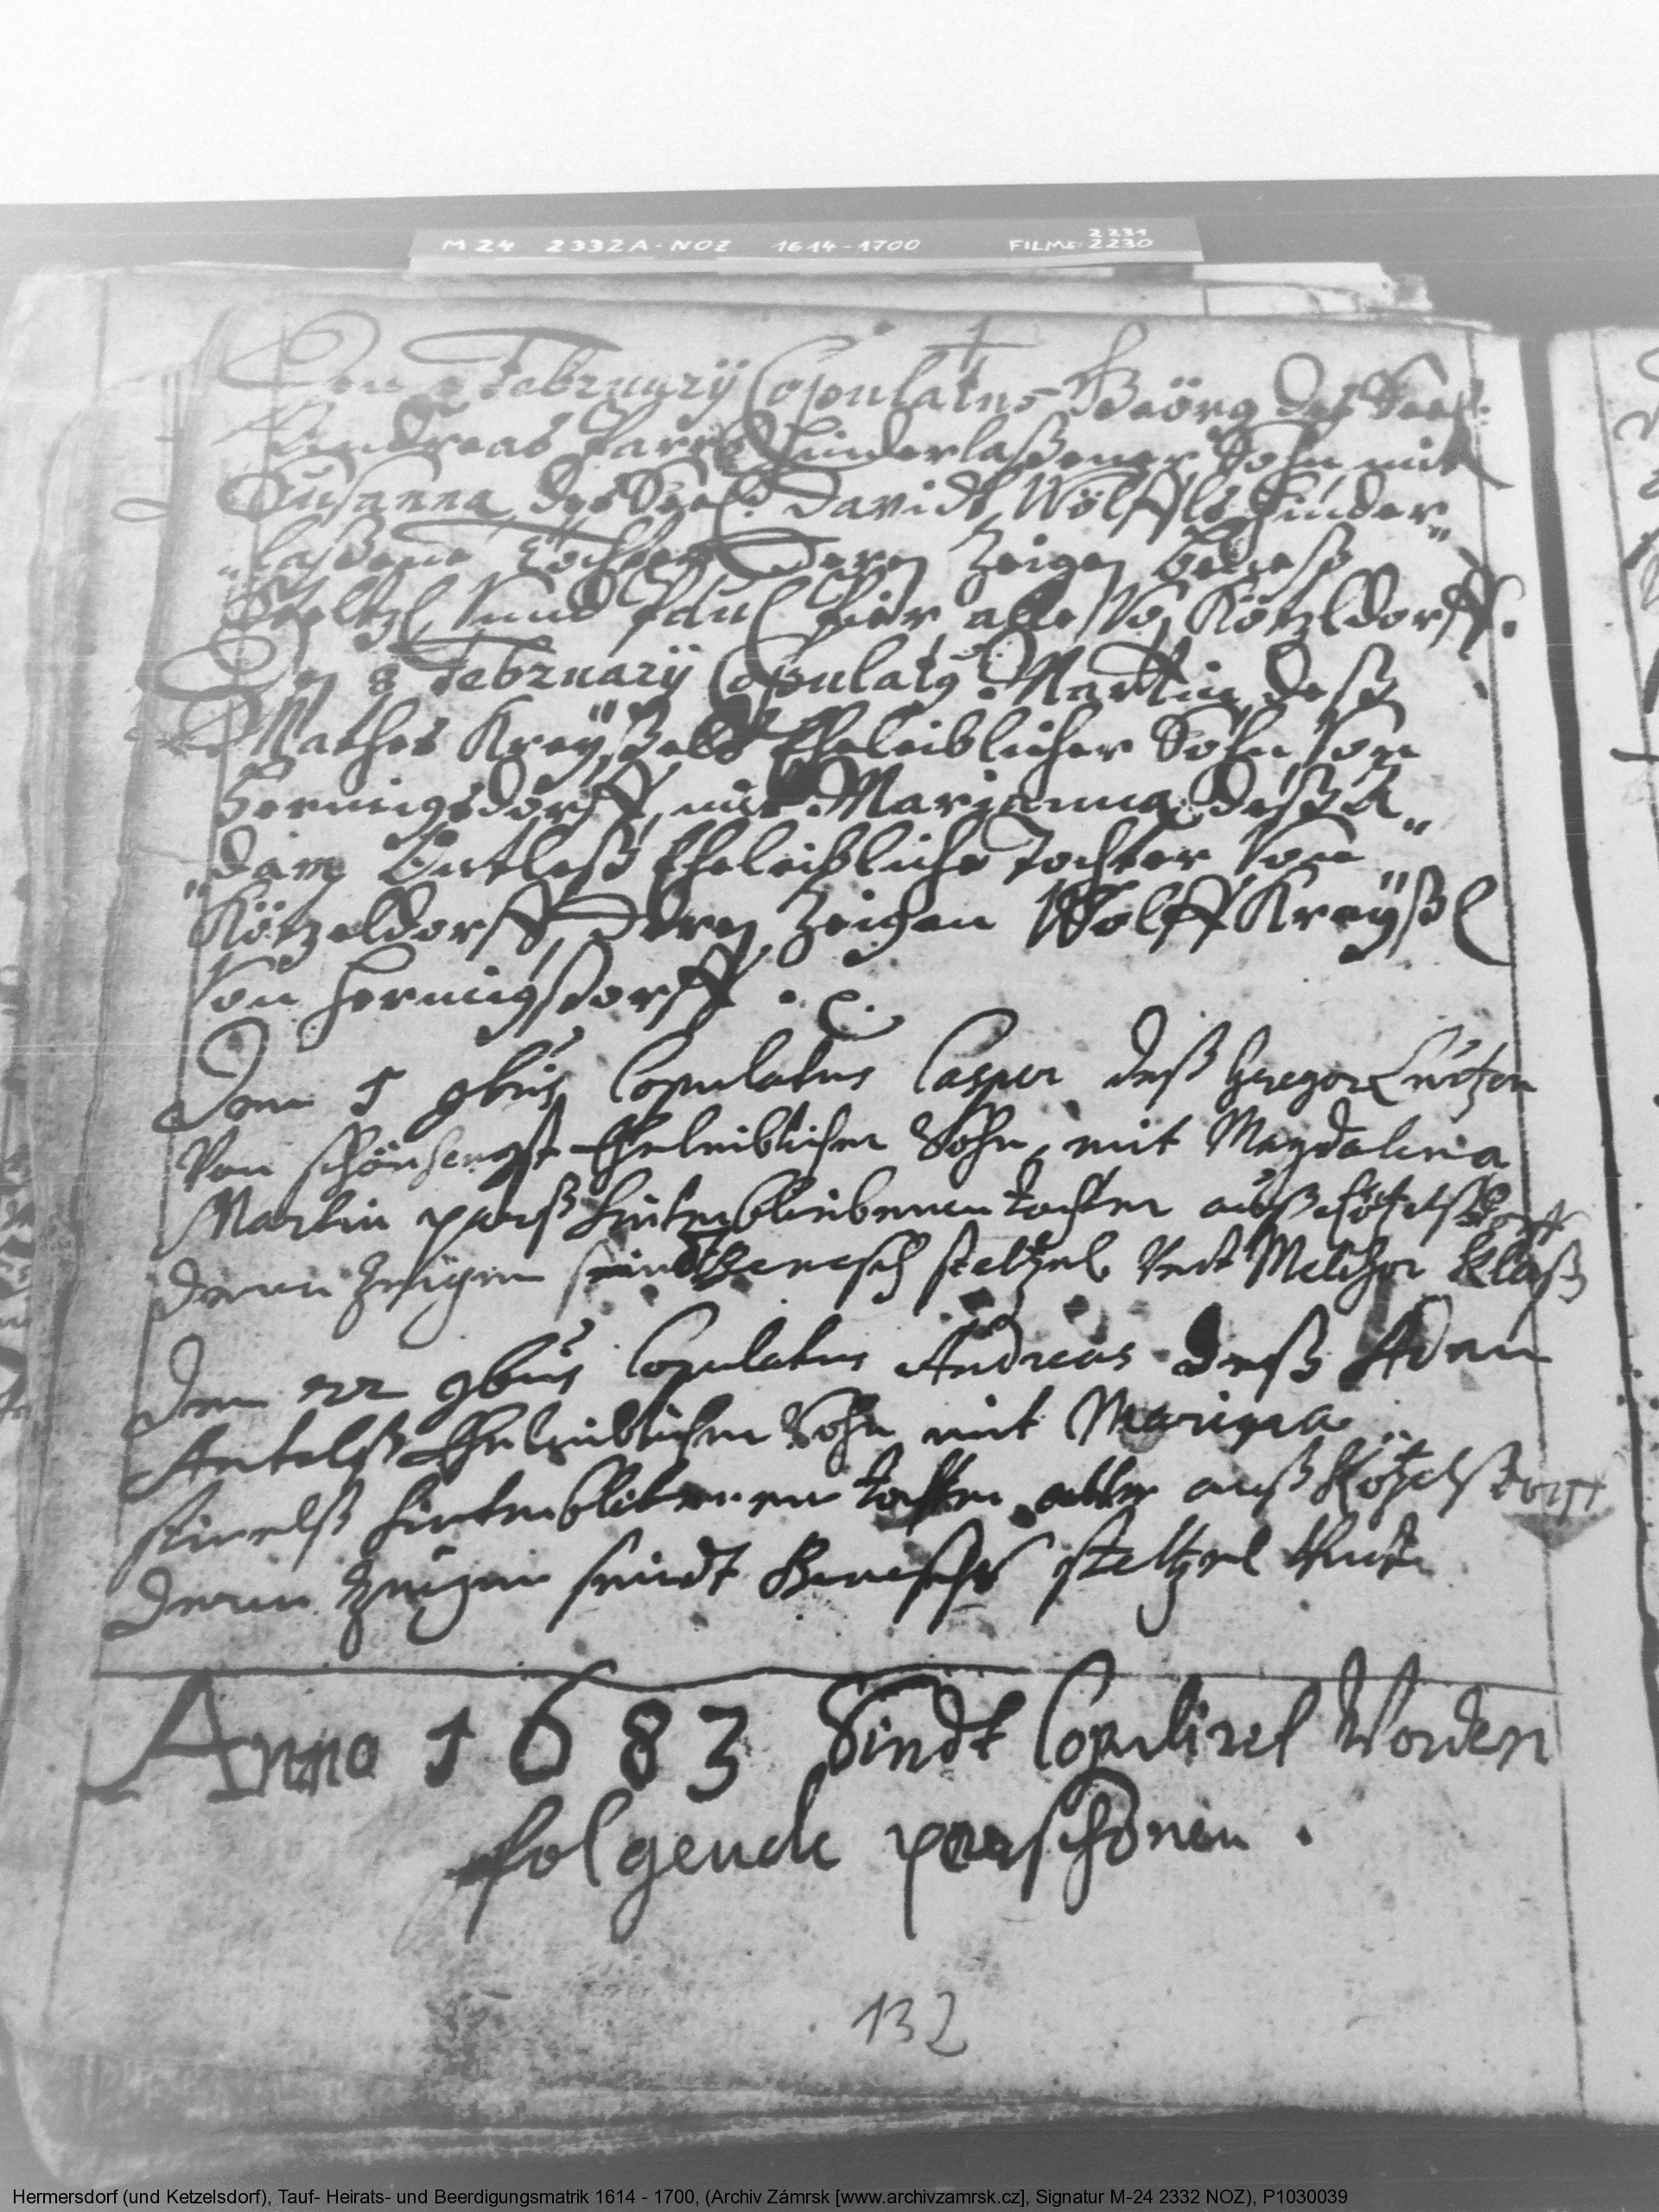 M 24 2332A-NOZ 1614-1700 FILME: 2231 2230
Den February Copulatus Geörg des Seel:
Andreas hinderlaßener Sohn mit
Susanna des Seel: Davidt Wölffls hinder„
„laßene Tochter Deren Zeigen
Steltzl Vnnd Paul alle Vo Kötzldorff.
Den 8 February Copulatq Martin deß
Mathes Kreÿßels Eheleiblicher Sohn Von
Hermigsdorff, mit Marianna deß A„
„dam Eheleibliche Tochter Von
Kötzeldorff, Deren Zeigen Wolff Kreÿßl
Von Hermigßdorff.
Den 1 9bris Copulatus Casper deß Gregor
Von schönhengst Eheleiblicher Sohn, mit Magdalena
Martin hinterbliebenen tochter auß
deren Zeigen seindt Benesch steltzel Vndt Melchor Klaß
Den 22 9bris Copulatus Andreas deß Adam
Antelß Eheleiblicher Sohn mit Marina
hinterbliebenen tochter alle auß Kötzelßdorff
deren Zeigen seindt Benesch steltzel
Anno 1683 Sindt Copulirel Worden
folgende perschonen.
132
Hermersdorf (und Ketzelsdorf), Tauf- Heirats- und Beerdigungsmatrik 1614 - 1700, (Archiv Zámrsk [www.archivzamrsk.cz], Signatur M-24 2332 NOZ), P1030039